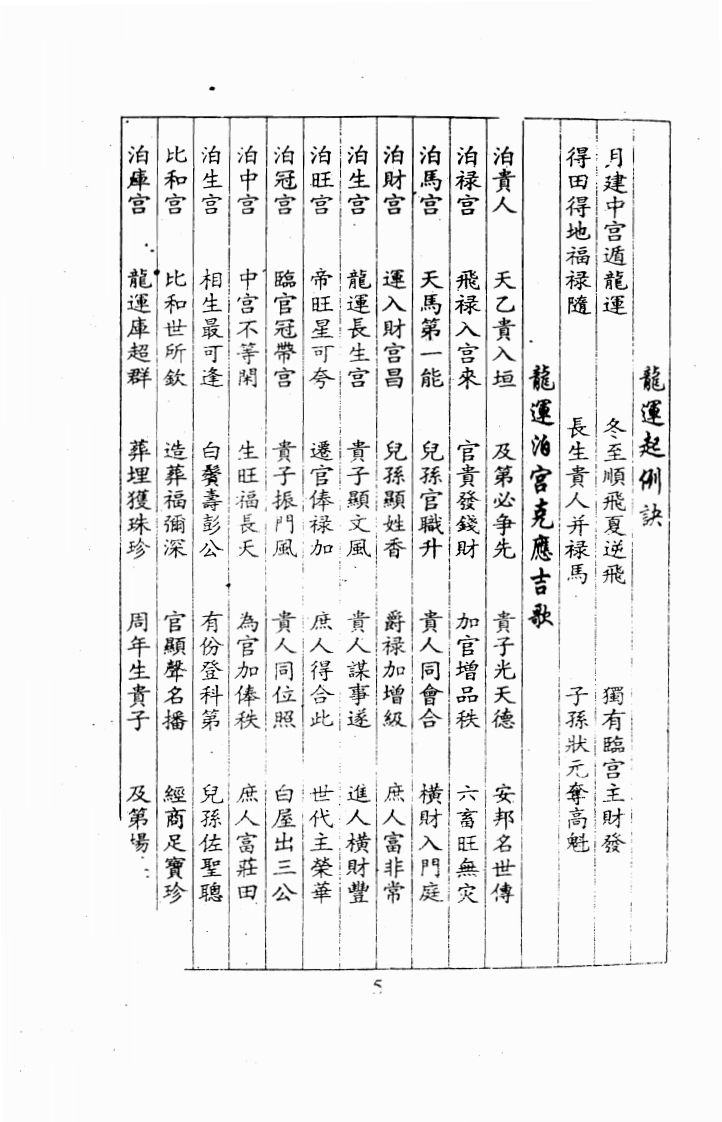 龍運起例訣
月建中宮遁龍運 冬至順飛夏逆飛 獨有臨宮主財發
得田得地福禄隨 長生貴人并禄馬 子孫狀元奪高魁
龍運泊宮克應吉歌
泊貴人 天乙貴入垣 及第必争先 貴子光天德 安邦名世傳
泊禄宮 飛禄入宮來 官貴發錢財 加官增品秩 六畜旺無灾
泊馬宮 天馬第一能 兒孫官職升 貴人同會合 橫財入門庭
泊財宮 運入財宮昌 兒孫顯姓香 爵禄加增級 庶人富非常
泊生宮 龍運長生宮 貴子顯文風 貴人謀事遂 進人橫財豐
泊旺宮 帝旺星可夸 遷官俸禄加 庶人得合此 世代主榮華
泊冠宮 臨官冠帶宮 貴子振門風 貴人同位照 白屋出三公
泊中宮 中宮不等閑 生旺福長天 為官加俸秩 庶人富莊田
泊生宮 相生最可逢 白鬢壽彭公 有份登科第 兒孫佐聖聰
比和宮 比和世所欽 造葬福彌深 官顯聲名播 經商足寶珍
泊庫宮 龍運庫超群 葬埋獲珠珍 周年生貴子 及第場
5